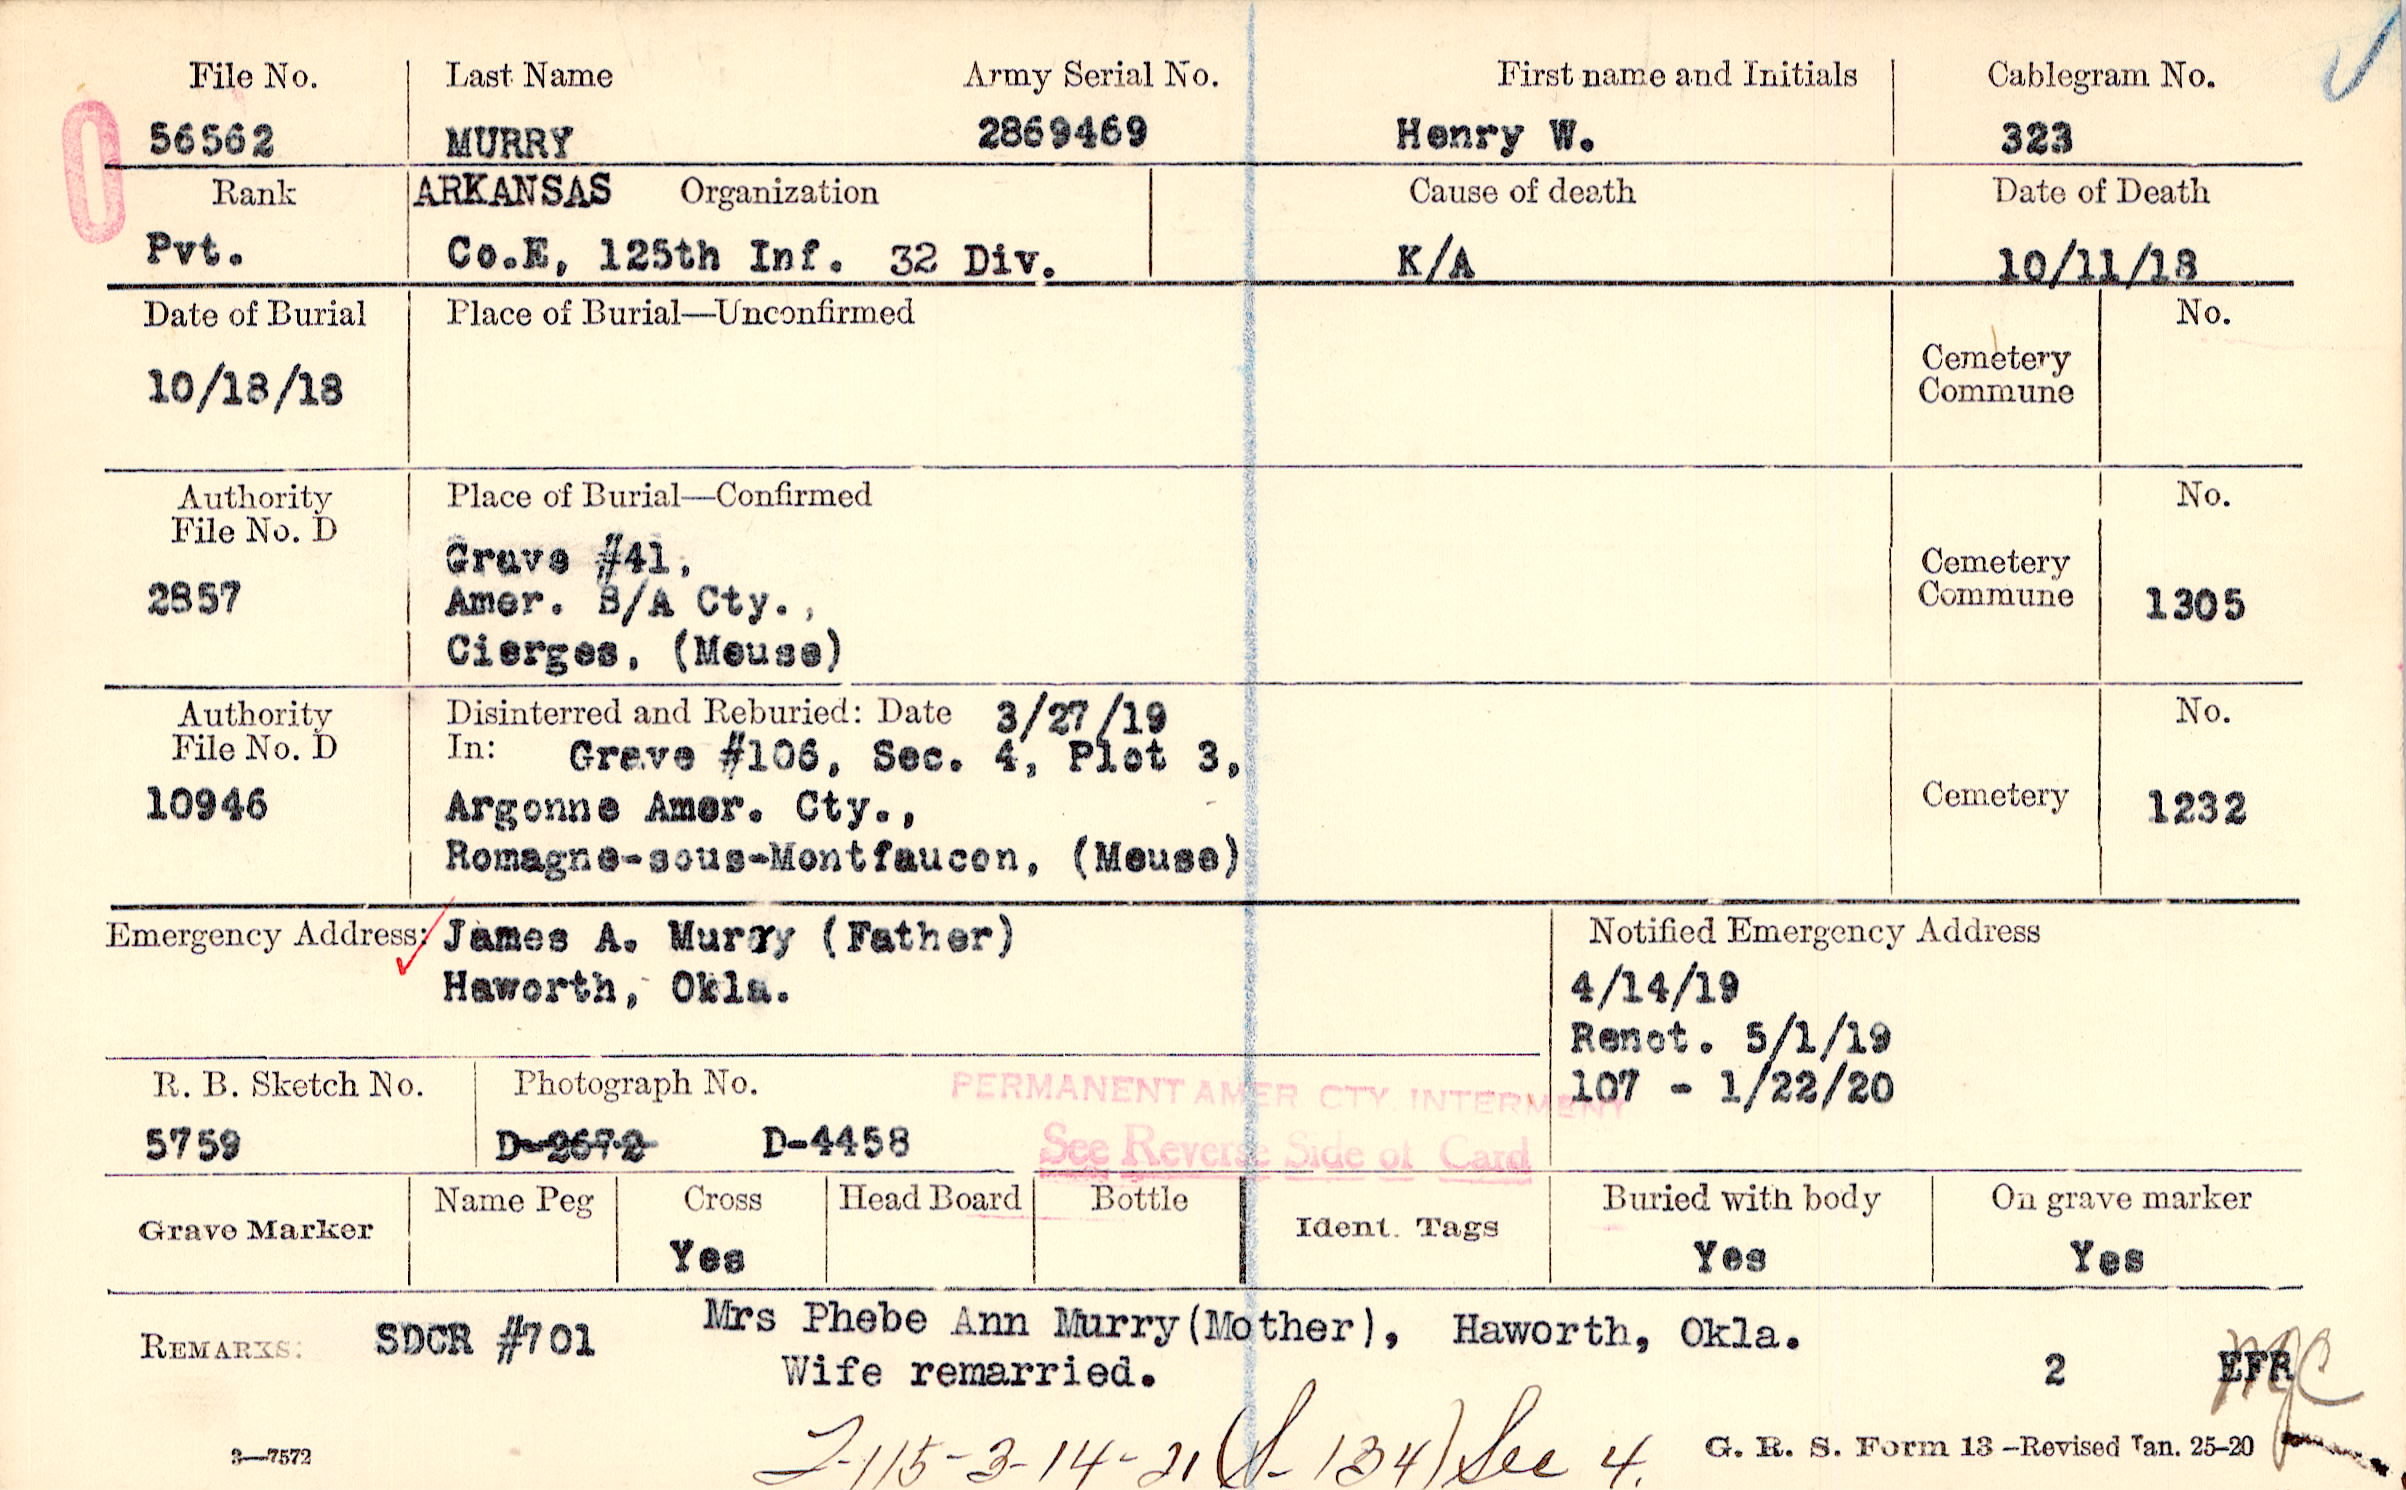 File No. Last Name Army Serial No. First name and Initials Cablegram No.
56562 MURRY 2869469 Henry W. 323
Rank ARKANSAS Organization Cause of death Date of Death
Pvt. Co.E, 125th Inf. 32 Div. K/A 10/11/18
Date of Burial Place of Burial—Unconfirmed No.
10/18/18 Cemetery
Commune
Authority Place of Burial—Confirmed No.
File No. D
Grave #41, Cemetery
2857 Amer. B/A Cty., Commune 1305
Cierges, (Meuse)
Authority Disinterred and Reburied: Date 3/27/19 No.
File No. D In: Grave #106, Sec. 4, Plot 3,
10946 Argonne Amer. Cty., Cemetery 1232
Romagne-sous-Montfaucon, (Meuse)
Emergency Address: James A. Murry (Father) Notified Emergency Address
Haworth, Okla. 4/14/19
Renot. 5/1/19
R. B. Sketch No. Photograph No. PERMANENT AMER CTY. INTERMENT 107 - 1/22/20
5759 D-2672 D-4458 See Reverse Side of Card
Grave Marker Name Peg Cross Head Board Bottle Ident. Tags Buried with body On grave marker
Yes Yes Yes
REMARKS: SDCR #701 Mrs Phebe Ann Murry(Mother), Haworth, Okla.
Wife remarried. 2 EFR
2-115-3-14-21 (S-134) See 4.
3—7572 G. R. S. Form 13—Revised Jan. 25-20